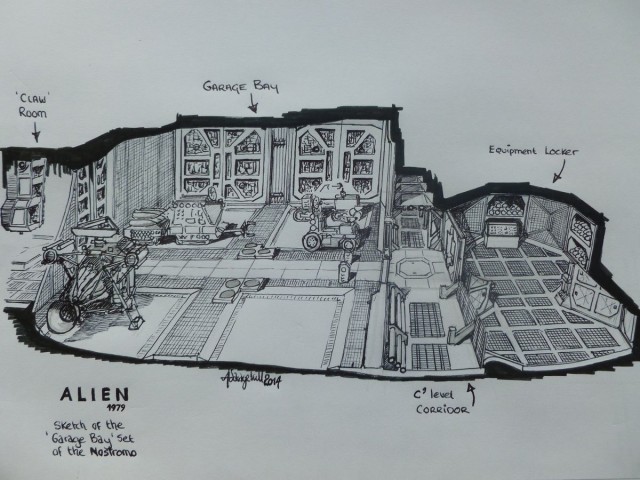 GARAGE BAY
'CLAW'
ROOM
Equipment Locker
C' level
CORRIDOR
ALIEN
1979
Sketch of the
'Garage Bay' Set
of the Nostromo